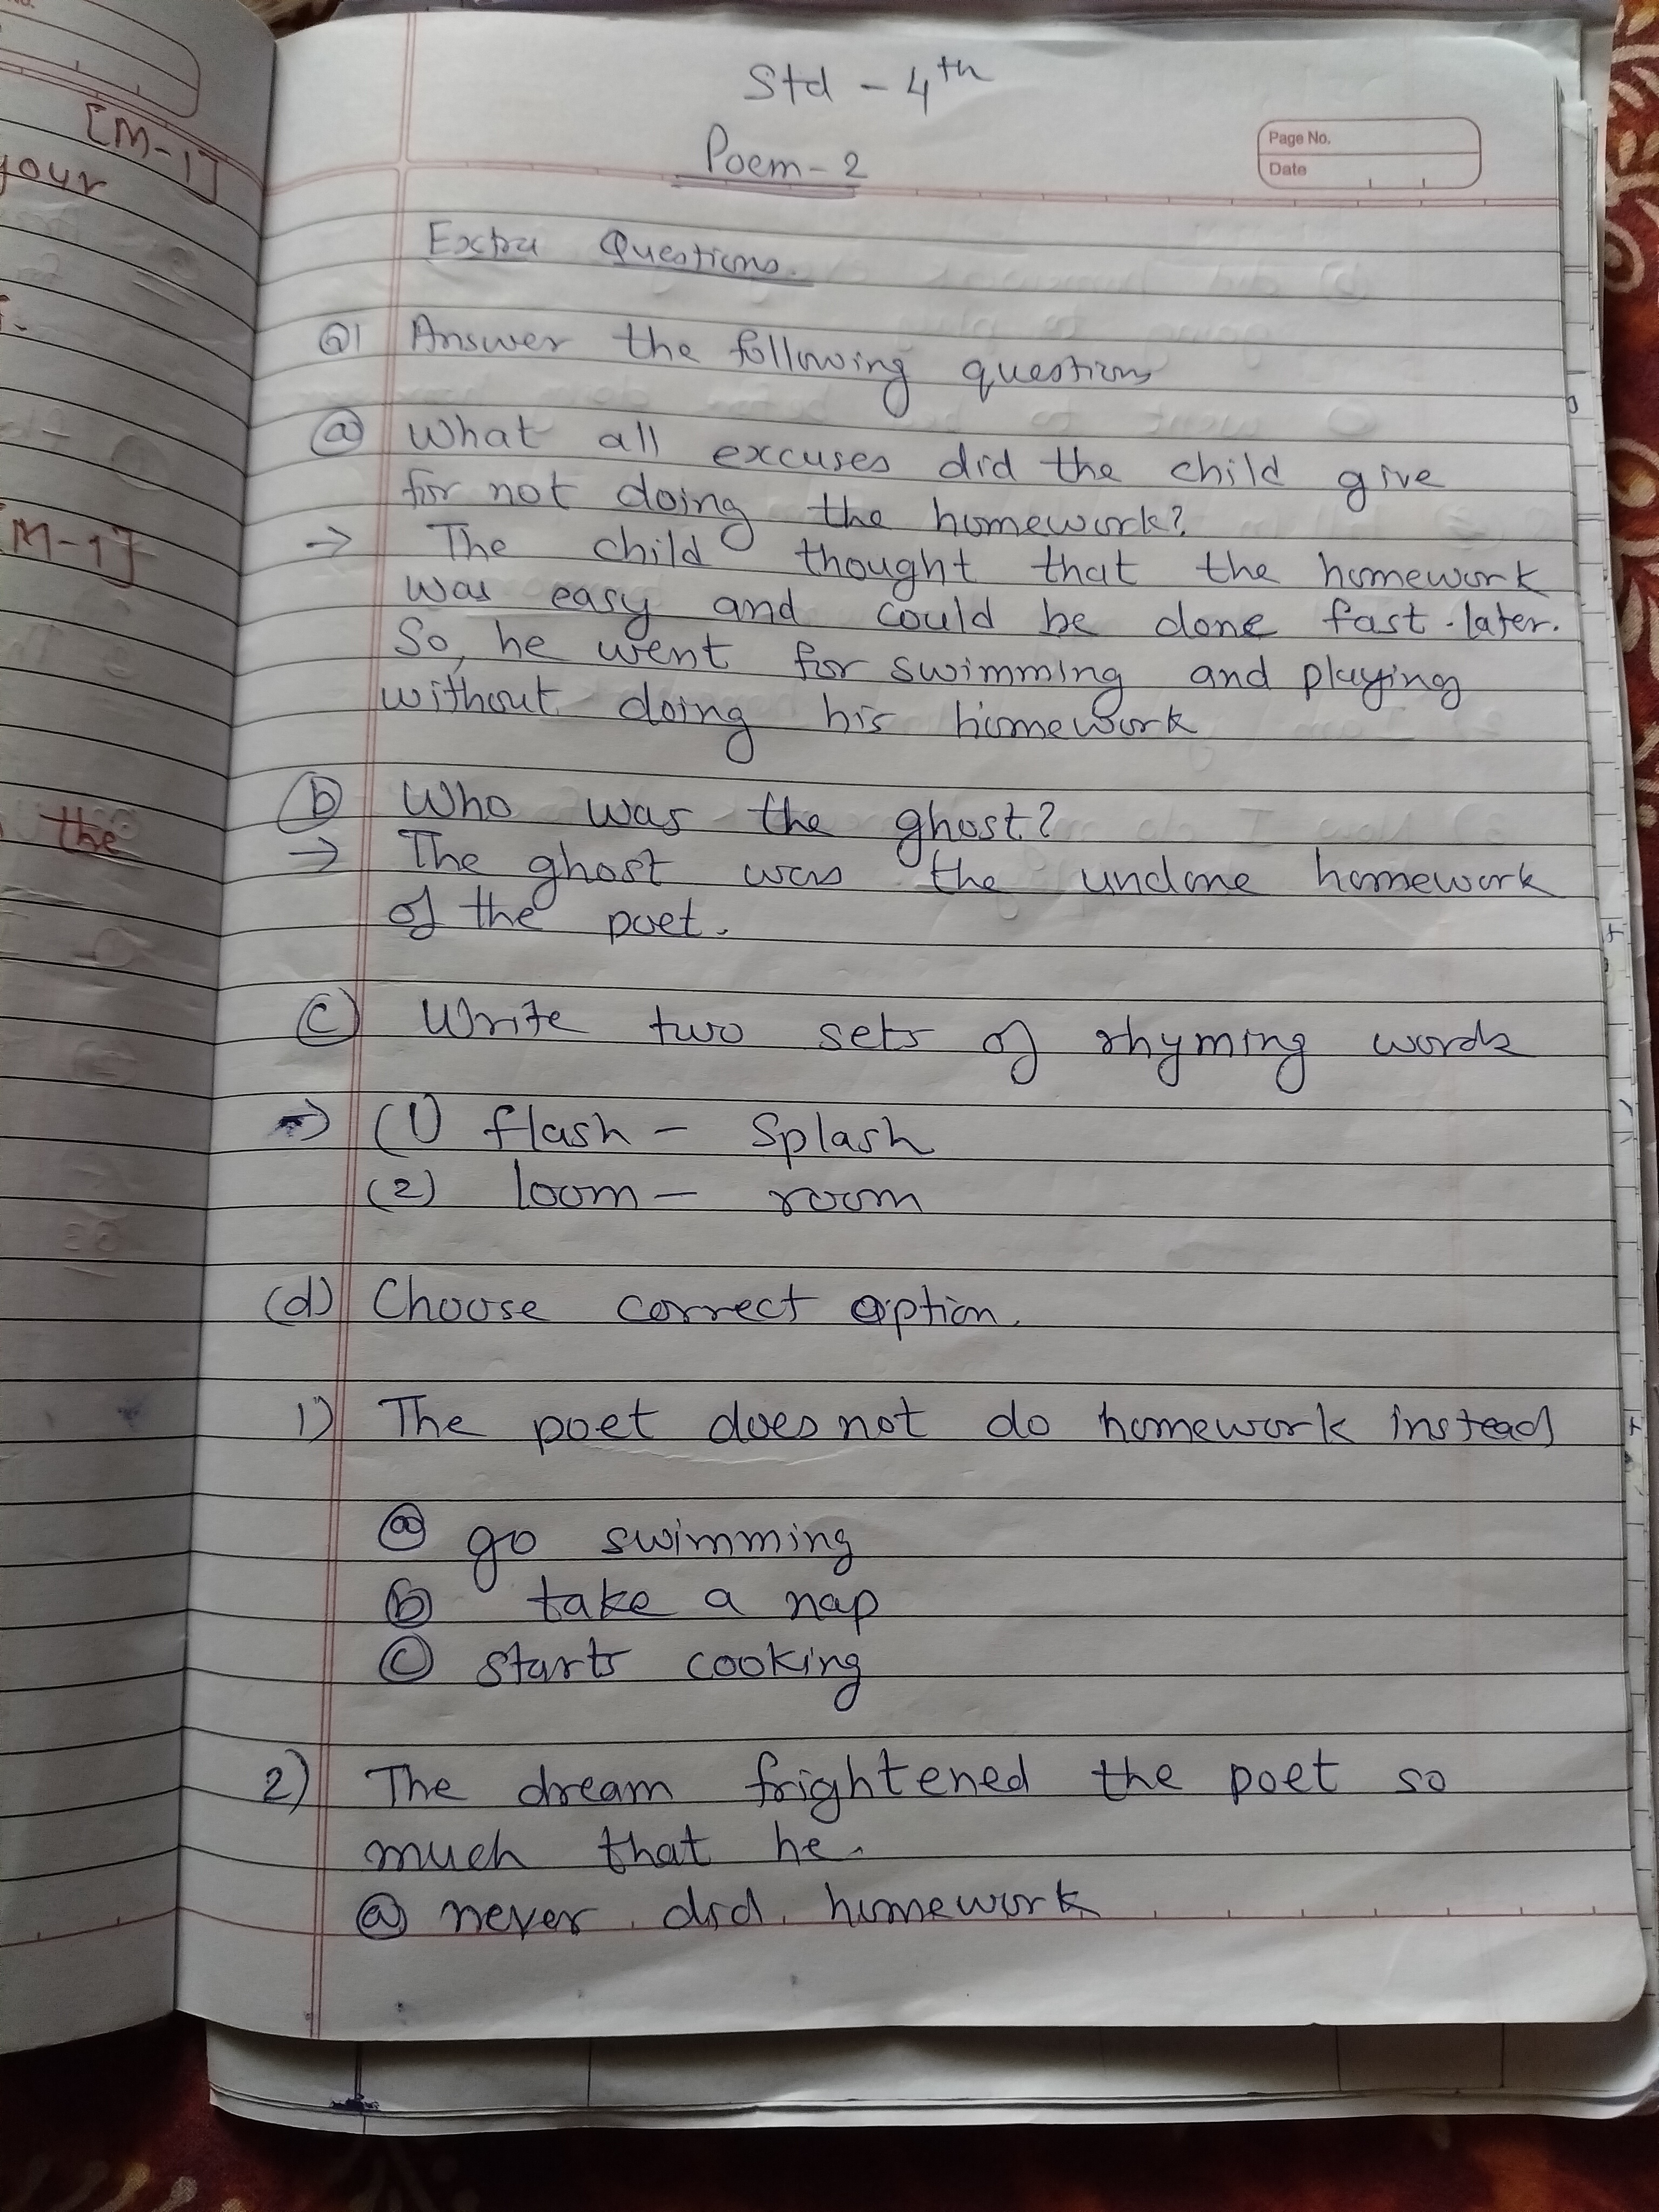 [M-1]
your
[M-1]
the
Std - 4th
Poem - 2
Page No.
Date
Extra Questions.
Q1 Answer the following questions
(a) What all excuses did the child give
for not doing the homework?
→ The child thought that the homework
was easy and could be done fast later.
So, he went for swimming and playing
without doing his homework
(b) Who was the ghost?
→ The ghost was the undone homework
of the poet.
(c) Write two sets of rhyming words
→ (1) flash - splash
(2) loom - room
(d) Choose correct option.
1) The poet does not do homework instead
(a) go swimming
(b) take a nap
(c) starts cooking
2) The dream frightened the poet so
much that he.
(a) never did homework